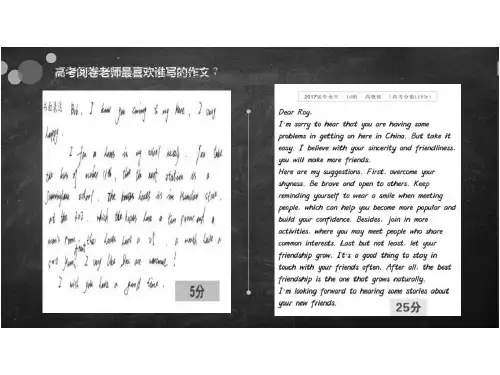 高考阅卷老师最喜欢谁写的作文？
Bob, I know you coming to my here, I very
happy.
I for a hours is my school nearly. You take
the bus of number 11th, that the next station is a
school. the houses is in
at the 302. which the house have a
room, the house have a
I very like you are
I wish you have a good time.
5分
2017届毕业生 16班 高晓楠 (高考分数139分)
Dear Roy,
I'm sorry to hear that you are having some
problems in getting on here in China. But take it
easy. I believe with your sincerity and friendliness,
you will make more friends.
Here are my suggestions. First, overcome your
shyness. Be brave and open to others. Keep
reminding yourself to wear a smile when meeting
people, which can help you become more popular and
build your confidence. Besides, join in more
activities, where you may meet people who share
common interests. Last but not least, let your
friendship grow. It's a good thing to stay in
touch with your friends often. After all, the best
friendship is the one that grows naturally.
I'm looking forward to hearing some stories about
your new friends.
25分